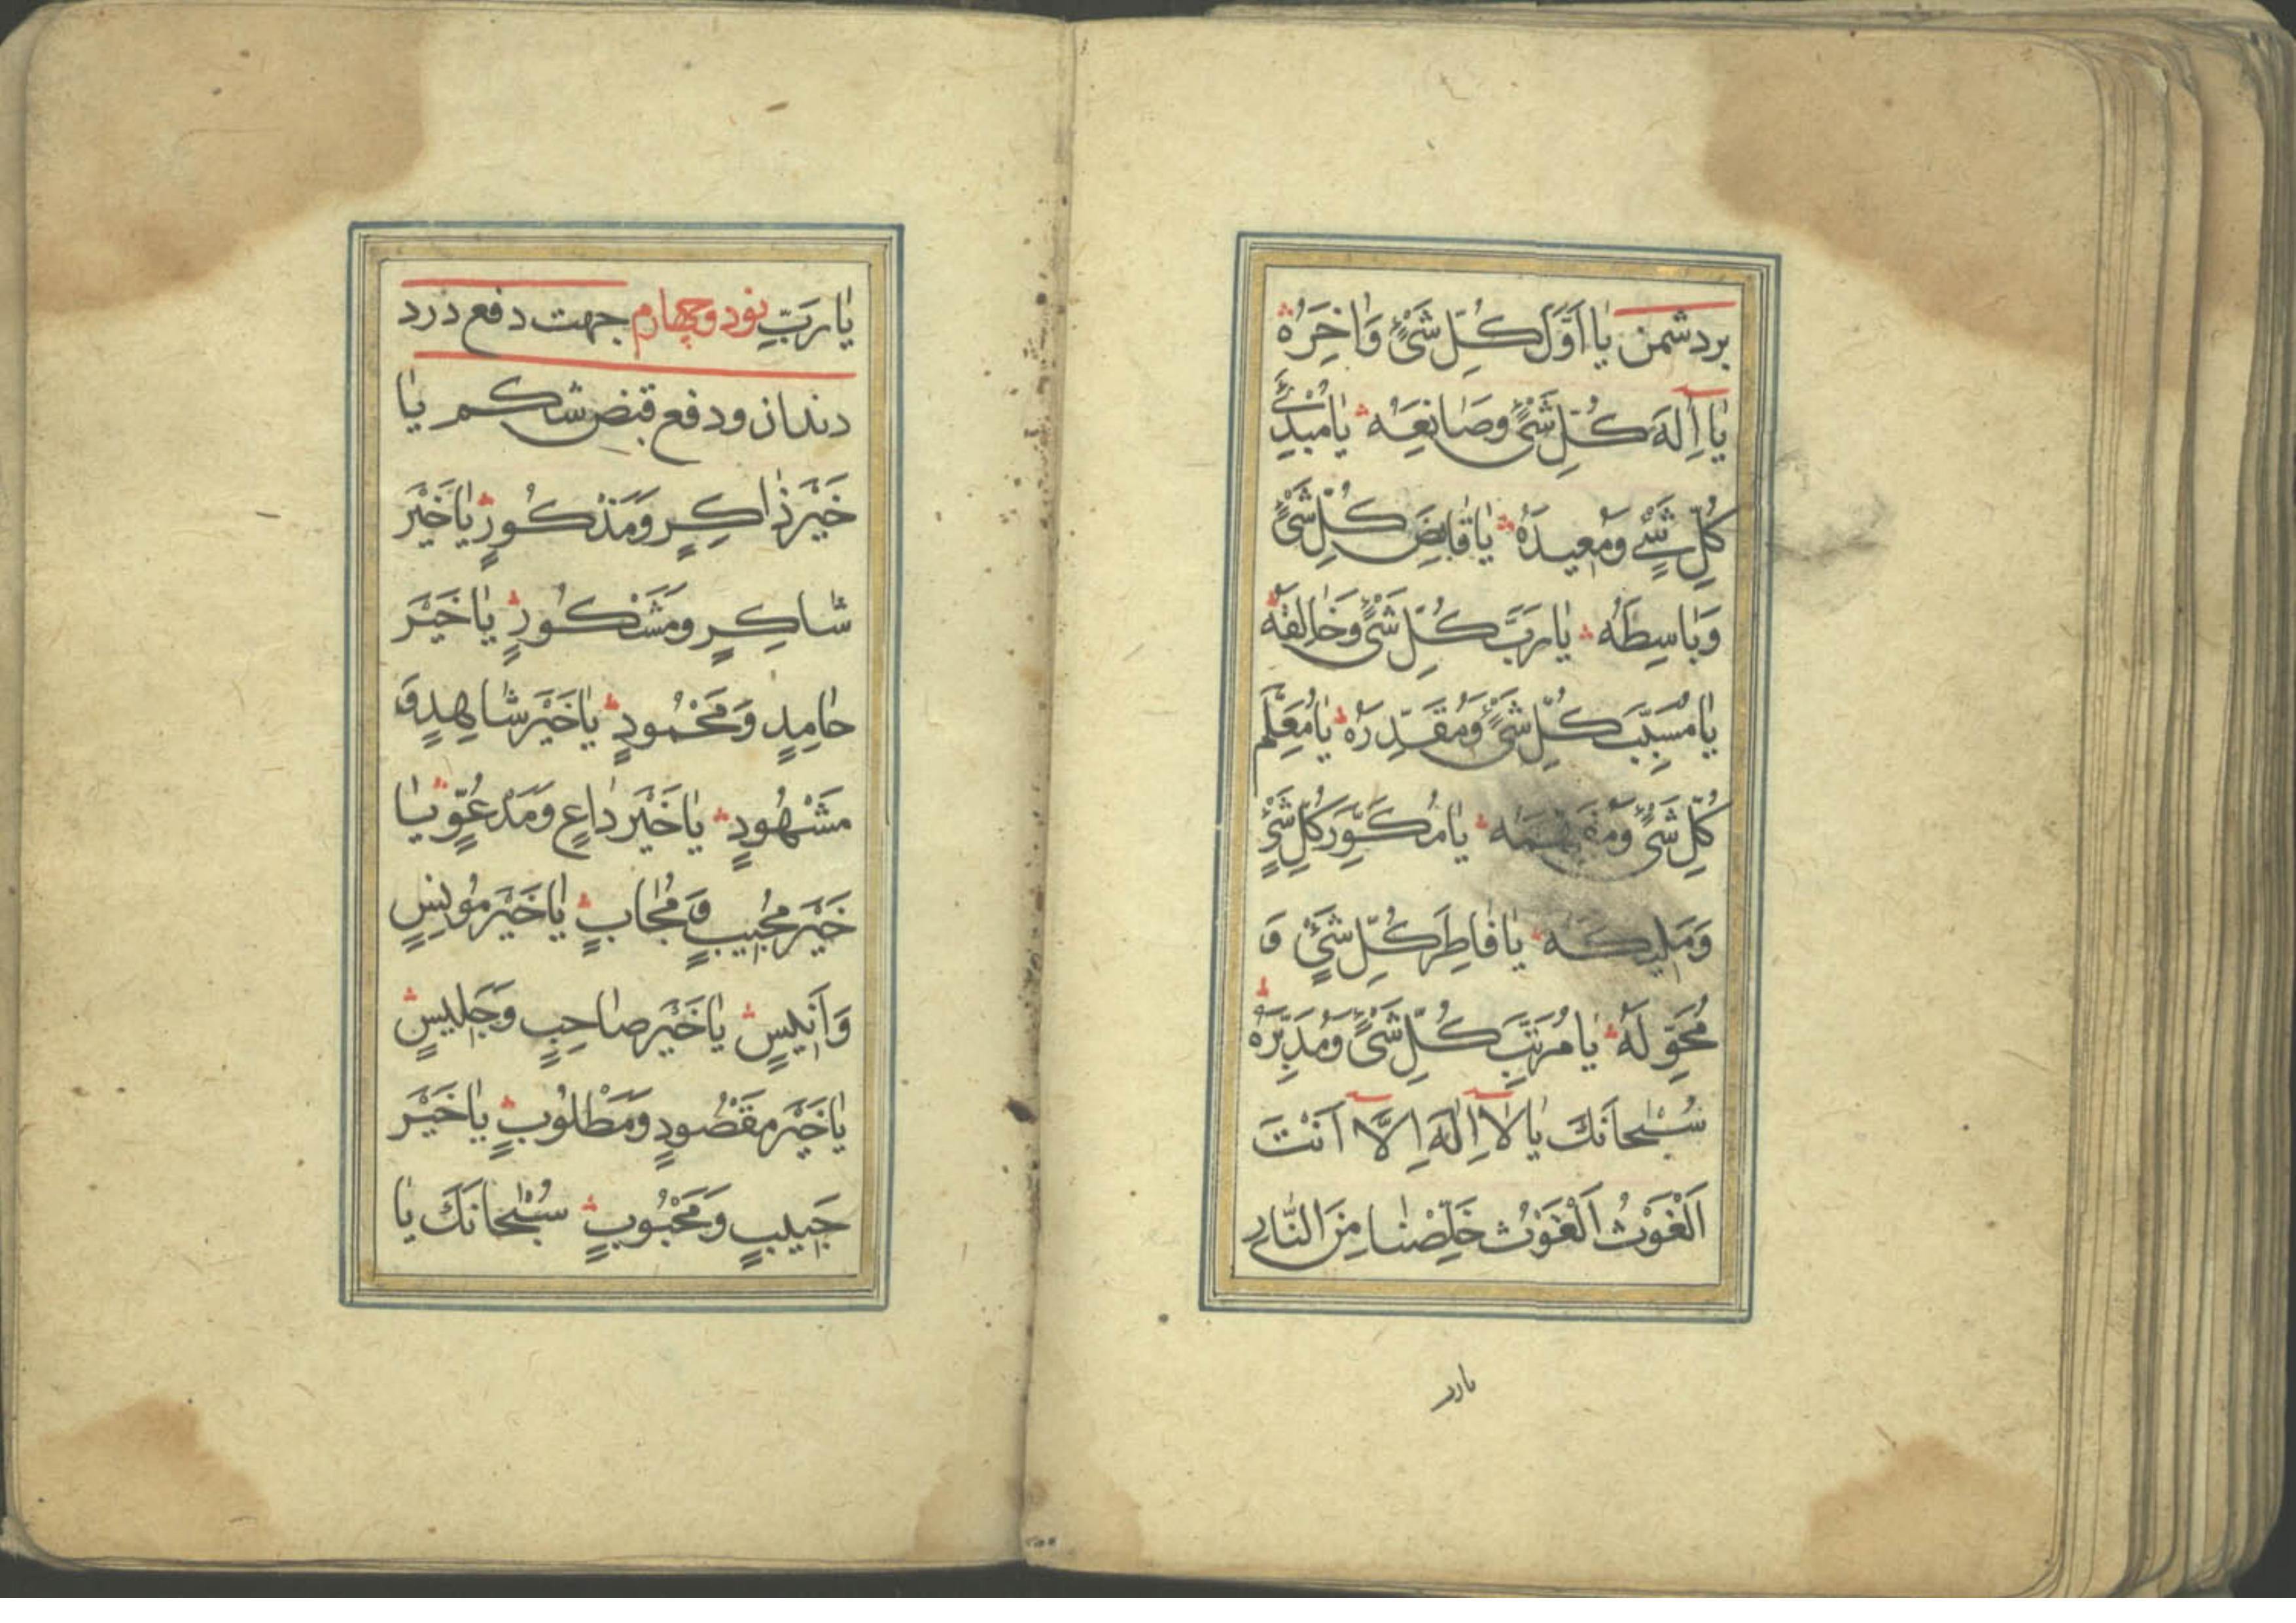 بردشمن يٰا اَوَّلَ كُلِّ شَىْءٍ وَاٰخِرَهُ
يٰا اِلٰهَ كُلِّ شَىْءٍ وَصَانِعَهُ يٰا مُبْدِئَ
كُلِّ شَىْءٍ وَمُعيدَهُ يٰا قٰابِضَ كُلِّ شَىْءٍ
وَبٰاسِطَهُ يٰا رَبَّ كُلِّ شَىْءٍ وَخٰالِقَهُ
يٰا مُسَبِّبَ كُلِّ شَىْءٍ وَمُقَدِّرَهُ يٰا مُعَلِّمَ
كُلِّ شَىْءٍ وَمُفَهِّمَهُ يٰا مُكَوِّرَ كُلِّ شَىْءٍ
وَمَليكَهُ يٰا فٰاطِرَ كُلِّ شَىْءٍ وَ
مُحَوِّلَهُ يٰا مُرَتِّبَ كُلِّ شَىْءٍ وَمُدَبِّرَهُ
سُبْحٰانَكَ يٰا لٰا اِلٰهَ اِلَّا اَنْتَ
اَلْغَوْثُ اَلْغَوْثُ خَلِّصْنٰا مِنَ النّٰارِ
يارب
يٰا رَبِّ نود وچهارم جهت دفع درد
دندان ودفع قبض شكم يٰا
خَيْرَ ذٰاكِرٍ وَمَذْكُورٍ يٰا خَيْرَ
شٰاكِرٍ وَمَشْكُورٍ يٰا خَيْرَ
حٰامِدٍ وَمَحْمُودٍ يٰا خَيْرَ شٰاهِدٍ وَ
مَشْهُودٍ يٰا خَيْرَ دٰاعٍ وَمَدْعُوٍّ يٰا
خَيْرَ مُجيبٍ وَمُجٰابٍ يٰا خَيْرَ مُونِسٍ
وَاَنيسٍ يٰا خَيْرَ صٰاحِبٍ وَجَليسٍ
يٰا خَيْرَ مَقْصُودٍ وَمَطْلُوبٍ يٰا خَيْرَ
حَبيبٍ وَمَحْبُوبٍ سُبْحٰانَكَ يٰا